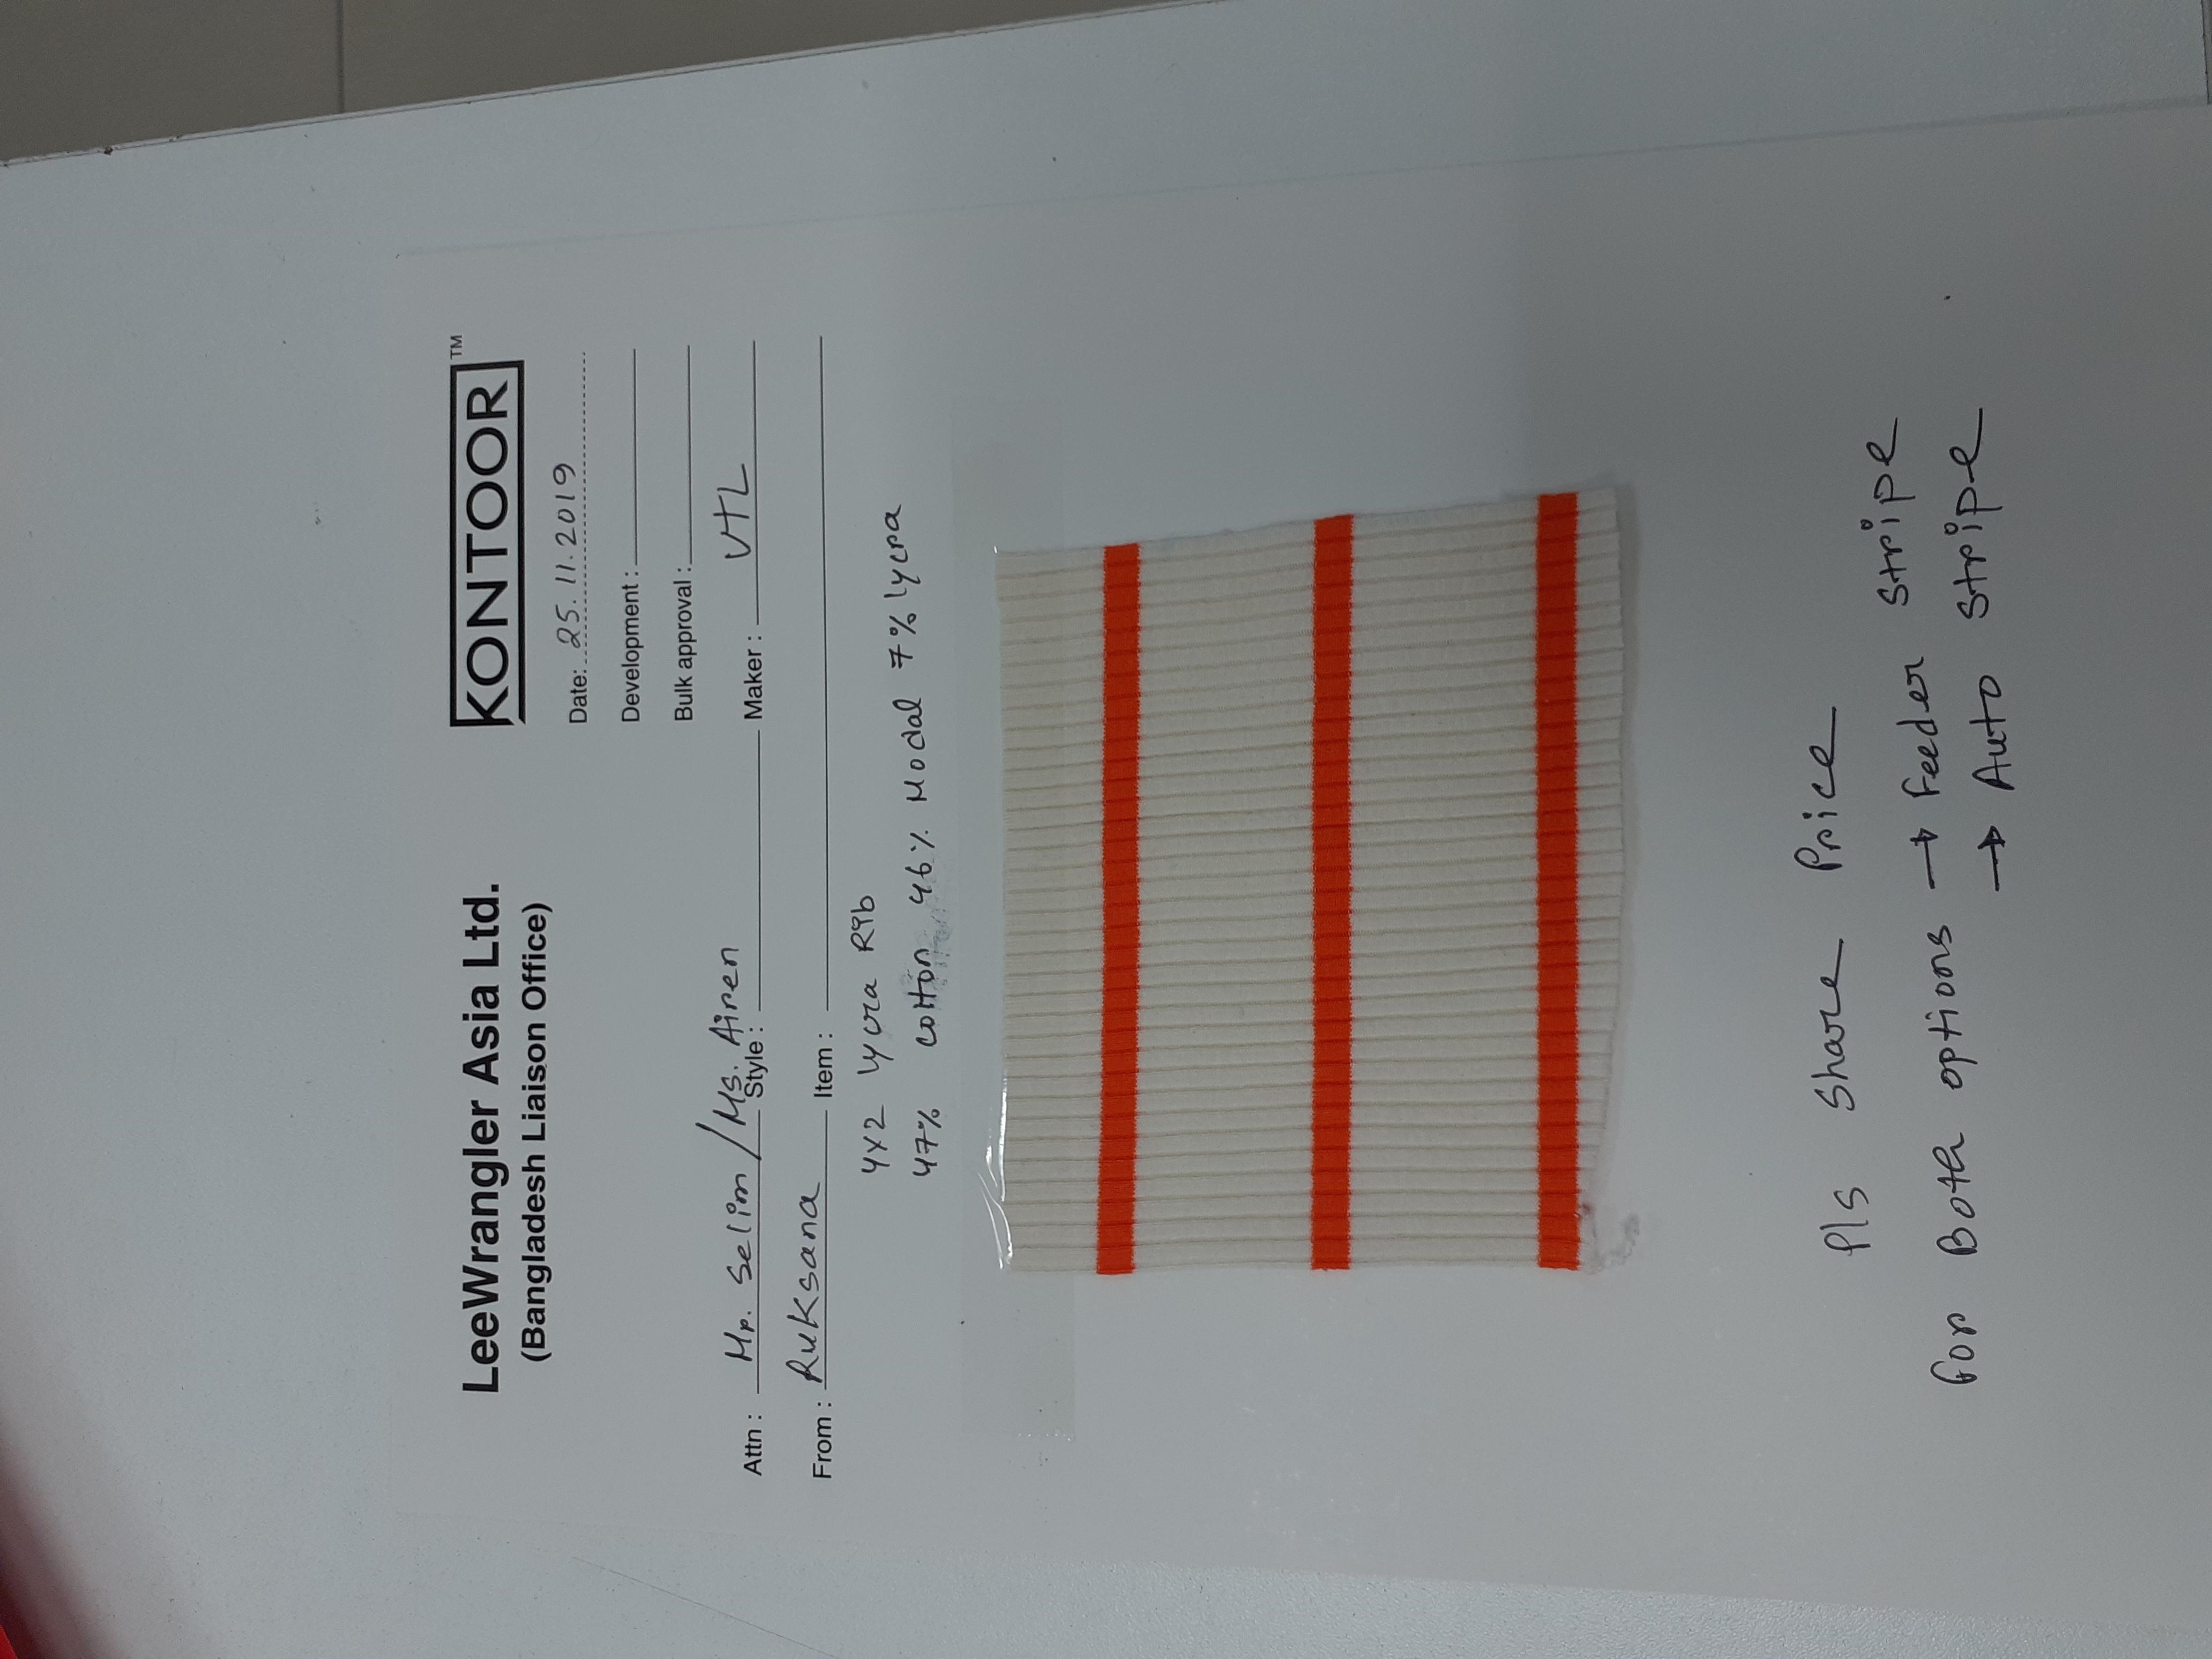 LeeWrangler Asia Ltd.
(Bangladesh Liaison Office)
KONTOOR™
Date: 25.11.2019
Development :
Bulk approval :
Attn : Mr. Selim / Ms. Airen Style : Maker : VTL
From : Ruksana Item :
4x2 lycra Rib
47% cotton 46% Modal 7% lycra
Pls share Price
for Both options → Feeder stripe
→ Auto stripe